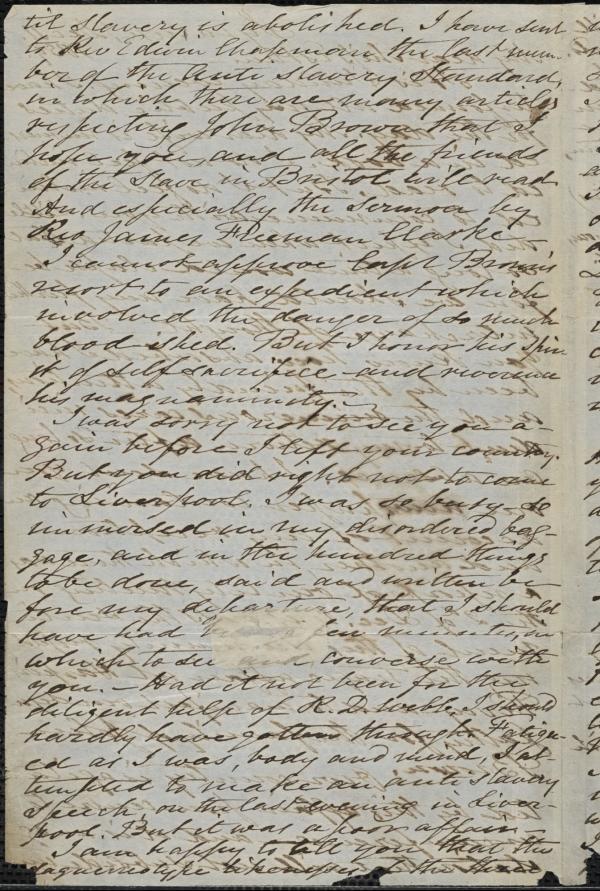 til slavery is abolished. I have sent
to Rev Edwin Chapman the last num-
ber of the Anti Slavery Standard,
in which there are many articles
respecting John Brown that I
hope you, and all the friends
of the Slave in Bristol will read
And especially the Sermon by
Rev James Freeman Clarke —
I cannot approve Capt Brown's
resort to an expedient which
involved the danger of so much
blood ished. But I honor his spir-
it of self sacrifice — and reverence
his magnanimity. —
I was sorry not to see you a-
gain before I left your country.
But you did right not to come
to Liverpool. I was so busy — so
immersed in my disordered bag-
gage, and in the hundred things
to be done, said and written be-
fore my departure, that I should
have had few minutes, in
which to see and converse with
you. — Had it not been for the
diligent help of R. D. Webb, I should
hardly have gotten through. Fatigu-
ed as I was, body and mind, I at-
tempted to make an anti slavery
speech, on the last evening in Liver-
pool. But it was a poor affair.
I am happy to tell you that the
daguerreotype likenesses of the three